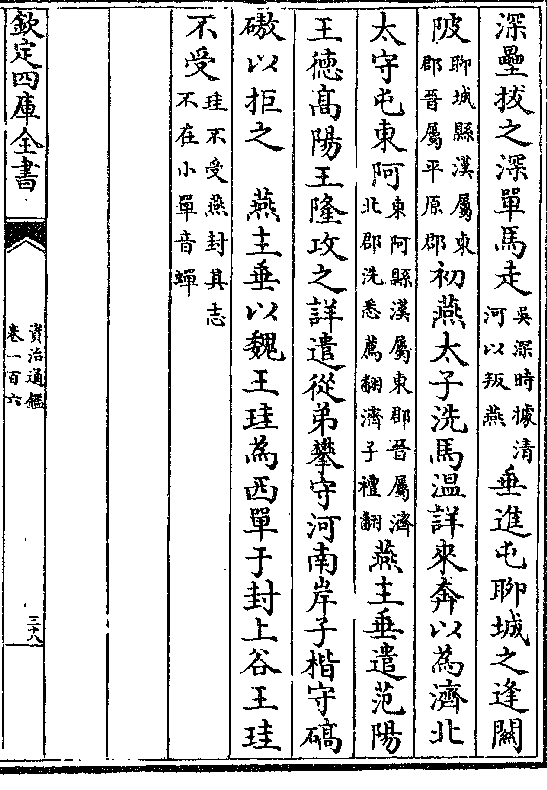 深壘拔之深單馬走吳深時據清河以叛燕垂進屯聊城之逢關
陂聊城縣漢屬東郡晉屬平原郡初燕太子洗馬温詳來奔以為濟北
太守屯東阿東阿縣漢屬東郡晉屬濟北郡洗悉薦翻濟子禮翻燕主垂遣范陽
王徳髙陽王隆攻之詳遣從弟攀守河南岸子楷守碻
磝以拒之　燕主垂以魏王珪為西單于封上谷王珪
不受珪不受燕封其志不在小單音蟬
欽定四庫全書
資治通鑑
卷一百六
三十八